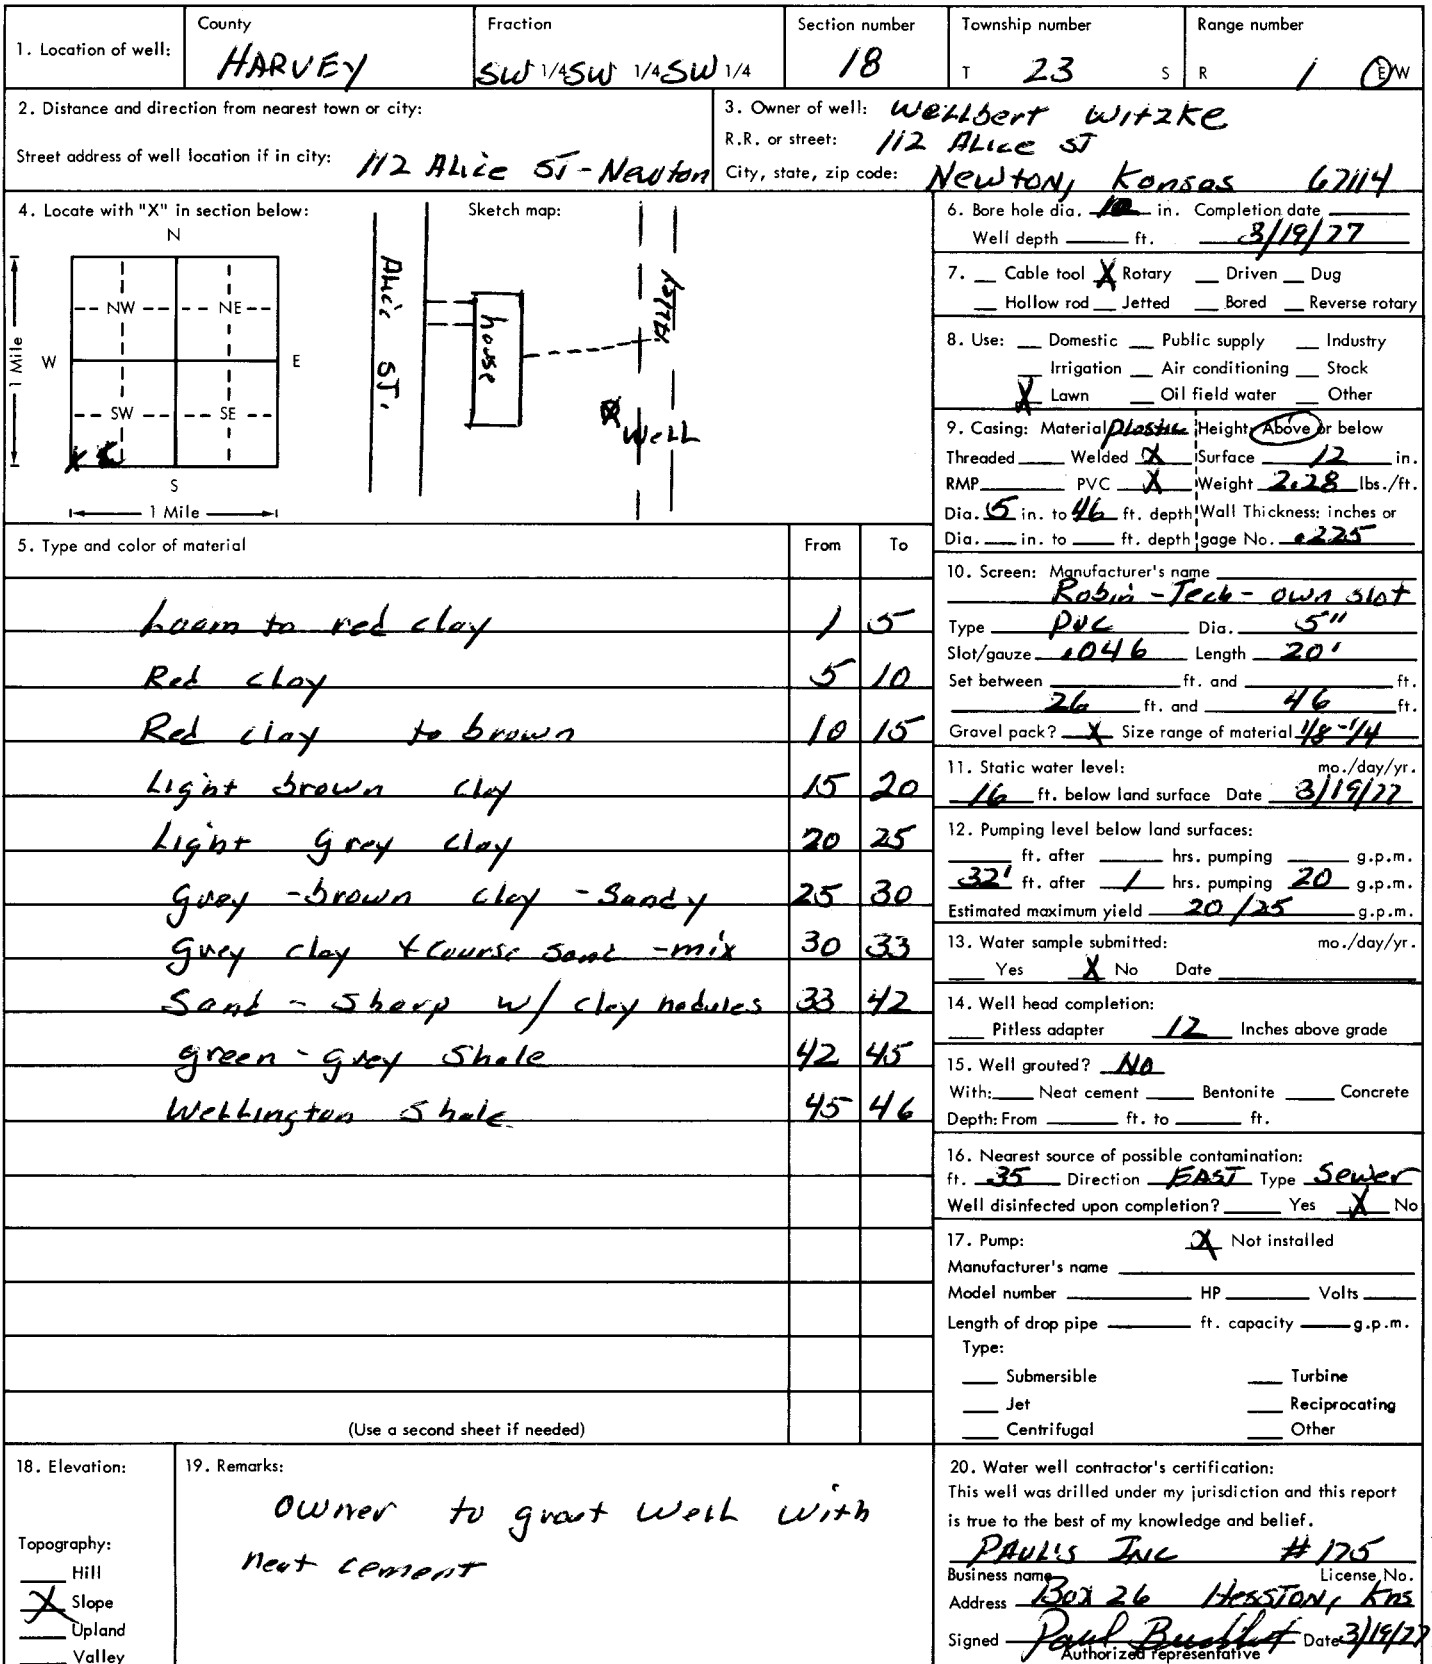 1. Location of well: County HARVEY Fraction SW 1/4 SW 1/4 SW 1/4 Section number 18 Township number T 23 S Range number R 1 E/W
2. Distance and direction from nearest town or city:
Street address of well location if in city: 112 Alice ST - Newton
3. Owner of well: Wellbert Witzke
R.R. or street: 112 Alice ST
City, state, zip code: Newton, Kansas 67114
4. Locate with "X" in section below:
N
NW NE
W E
SW SE
X
S
1 Mile
1 Mile
Sketch map:
Alic ST.
house
Alley
Well
5. Type and color of material From To
Loam to red clay 1 5
Red clay 5 10
Red clay to brown 10 15
Light brown clay 15 20
Light grey clay 20 25
grey - brown clay - Sandy 25 30
grey clay + course sand - mix 30 33
Sand - sharp w/ clay nodules 33 42
green - grey Shale 42 45
Wellington Shale 45 46
(Use a second sheet if needed)
6. Bore hole dia. in. Completion date
Well depth ft. 3/19/77
7. Cable tool X Rotary Driven Dug
Hollow rod Jetted Bored Reverse rotary
8. Use: Domestic Public supply Industry
Irrigation Air conditioning Stock
X Lawn Oil field water Other
9. Casing: Material plastic Height: Above or below
Threaded Welded X Surface 12 in.
RMP PVC X Weight 2.28 lbs./ft.
Dia. 5 in. to 46 ft. depth Wall Thickness: inches or
Dia. in. to ft. depth gage No. .225
10. Screen: Manufacturer's name
Robin - Tech - own slot
Type PVC Dia. 5"
Slot/gauze .046 Length 20'
Set between ft. and ft.
26 ft. and 46 ft.
Gravel pack? X Size range of material 1/8 - 1/4
11. Static water level: mo./day/yr.
16 ft. below land surface Date 3/19/77
12. Pumping level below land surfaces:
ft. after hrs. pumping g.p.m.
32' ft. after 1 hrs. pumping 20 g.p.m.
Estimated maximum yield 20/25 g.p.m.
13. Water sample submitted: mo./day/yr.
Yes X No Date
14. Well head completion:
Pitless adapter 12 Inches above grade
15. Well grouted? No
With: Neat cement Bentonite Concrete
Depth: From ft. to ft.
16. Nearest source of possible contamination:
ft. 35 Direction EAST Type Sewer
Well disinfected upon completion? Yes X No
17. Pump: X Not installed
Manufacturer's name
Model number HP Volts
Length of drop pipe ft. capacity g.p.m.
Type:
Submersible Turbine
Jet Reciprocating
Centrifugal Other
18. Elevation:
Topography:
Hill
X Slope
Upland
Valley
19. Remarks:
owner to grout Well with
neat cement
20. Water well contractor's certification:
This well was drilled under my jurisdiction and this report
is true to the best of my knowledge and belief.
PAUL'S INC #175
Business name License No.
Address Box 26 Hesston, Kns
Signed Paul Date 3/19/77
Authorized representative